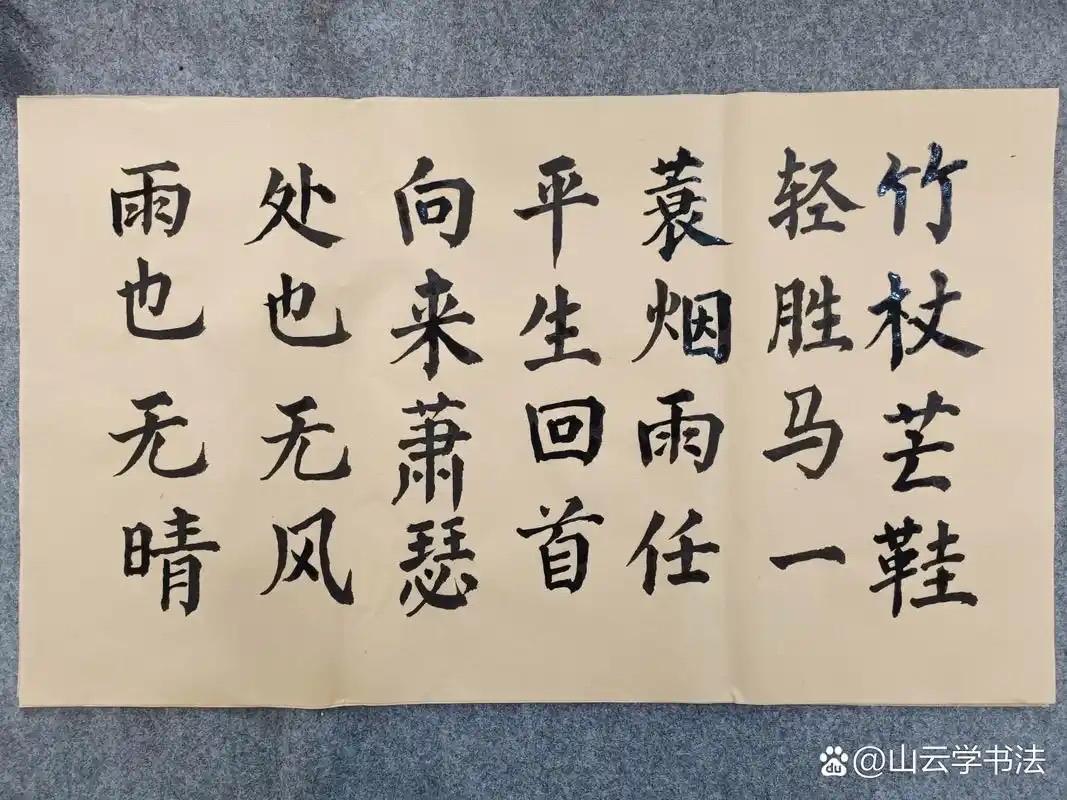 竹杖芒鞋
轻胜马一
蓑烟雨任
平生回首
向来萧瑟
处也无风
雨也无晴
du @山云学书法